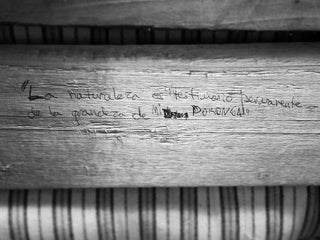 "La naturaleza es testimonio permanente
de la grandeza de